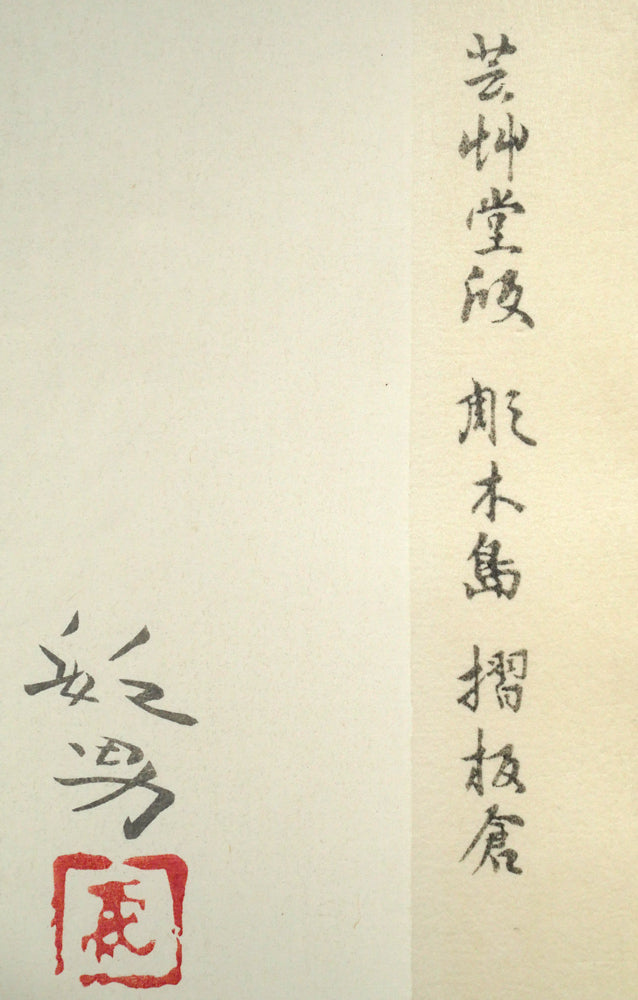 芸艸堂版 彫木島 摺板倉
敏男